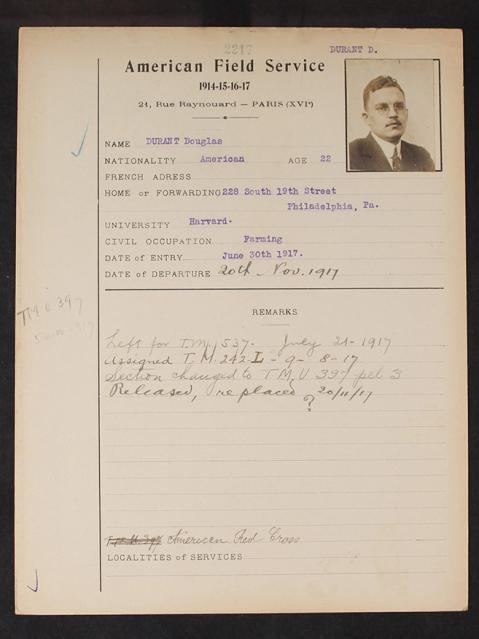 2217
DURANT D.
American Field Service
1914-15-16-17
21, Rue Raynouard — PARIS (XVIᵉ)
NAME DURANT Douglas
NATIONALITY American AGE 22
FRENCH ADRESS
HOME or FORWARDING 228 South 19th Street
Philadelphia, Pa.
UNIVERSITY Harvard.
CIVIL OCCUPATION Farming
DATE of ENTRY June 30th 1917.
DATE of DEPARTURE 20th Nov. 1917
TMU 397
REMARKS
Left for T.M. 537- July 21-1917
Assigned T.M. 242-I-9-8-17
Section changed to T.M.U 397 pel 3
Released, replaced ? 20/11/17
American Red Cross
LOCALITIES of SERVICES